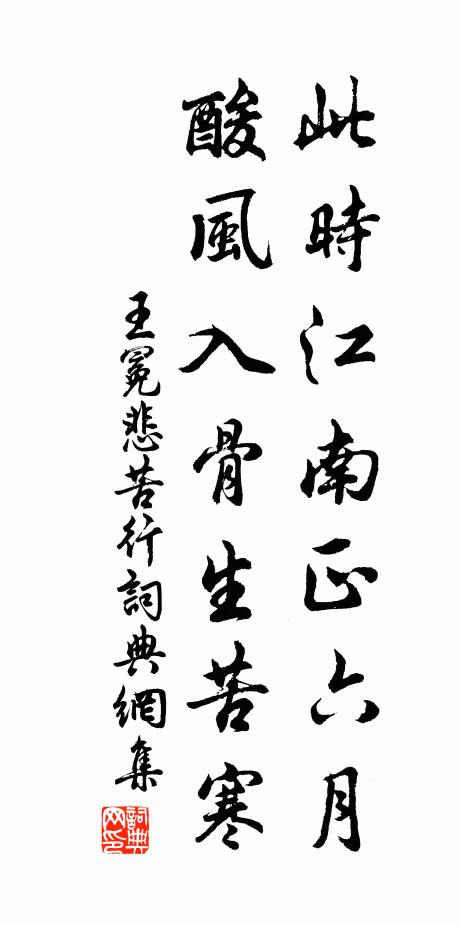 此時江南正六月
酸風入骨生苦寒
王冕悲苦行詞典網集
詞典网印